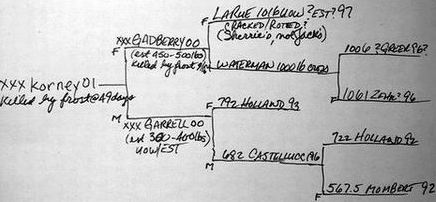 LARUE 1016 LOW ? EST? 97
CRACKED/ROTED?
(Sherrie's, not Jack's)
F
xxx GADBERRY 00
(est 450-500 lbs)
Killed by frost
F
WATERMAN 1000
1006 ? GREER 96?
1061 ZEHR? 96
F
xxx Korney 01
Killed by frost @ 49 days
F 792 HOLLAND 93
M
xxx GARRELL 00
(est 300-400 lbs)
M 682 CASTELLUCCI 96
722 HOLLAND 92
F 567.5 MOMBERT 92